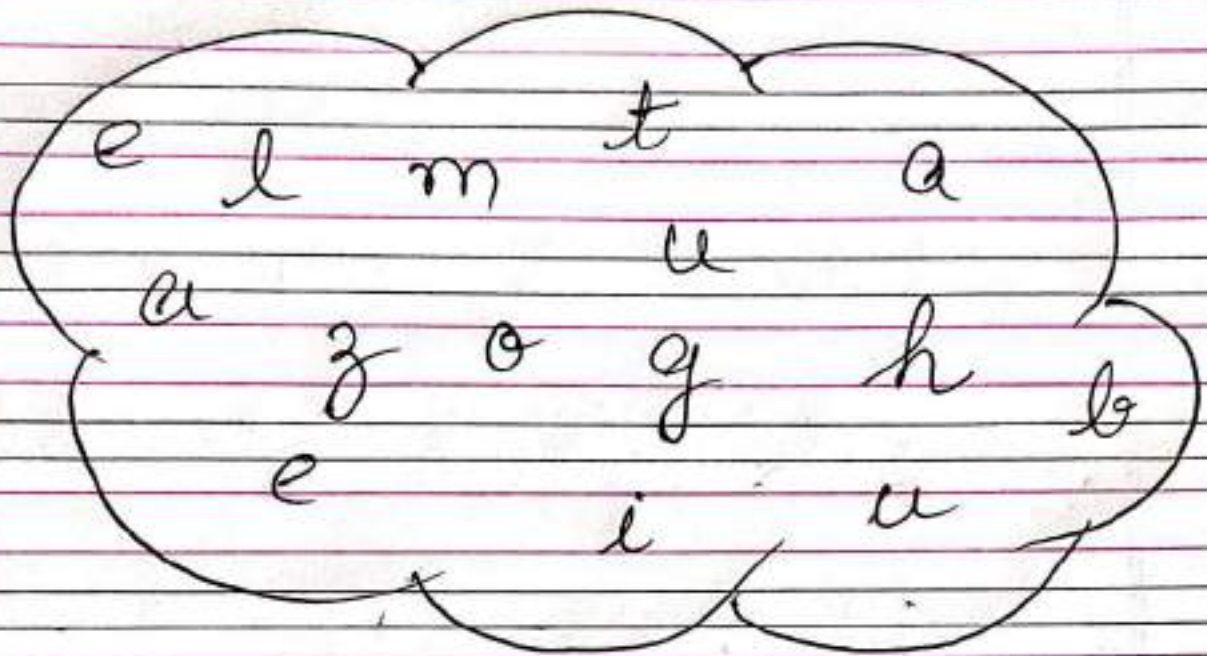 e l m t a
a u
z o g h b
e i u